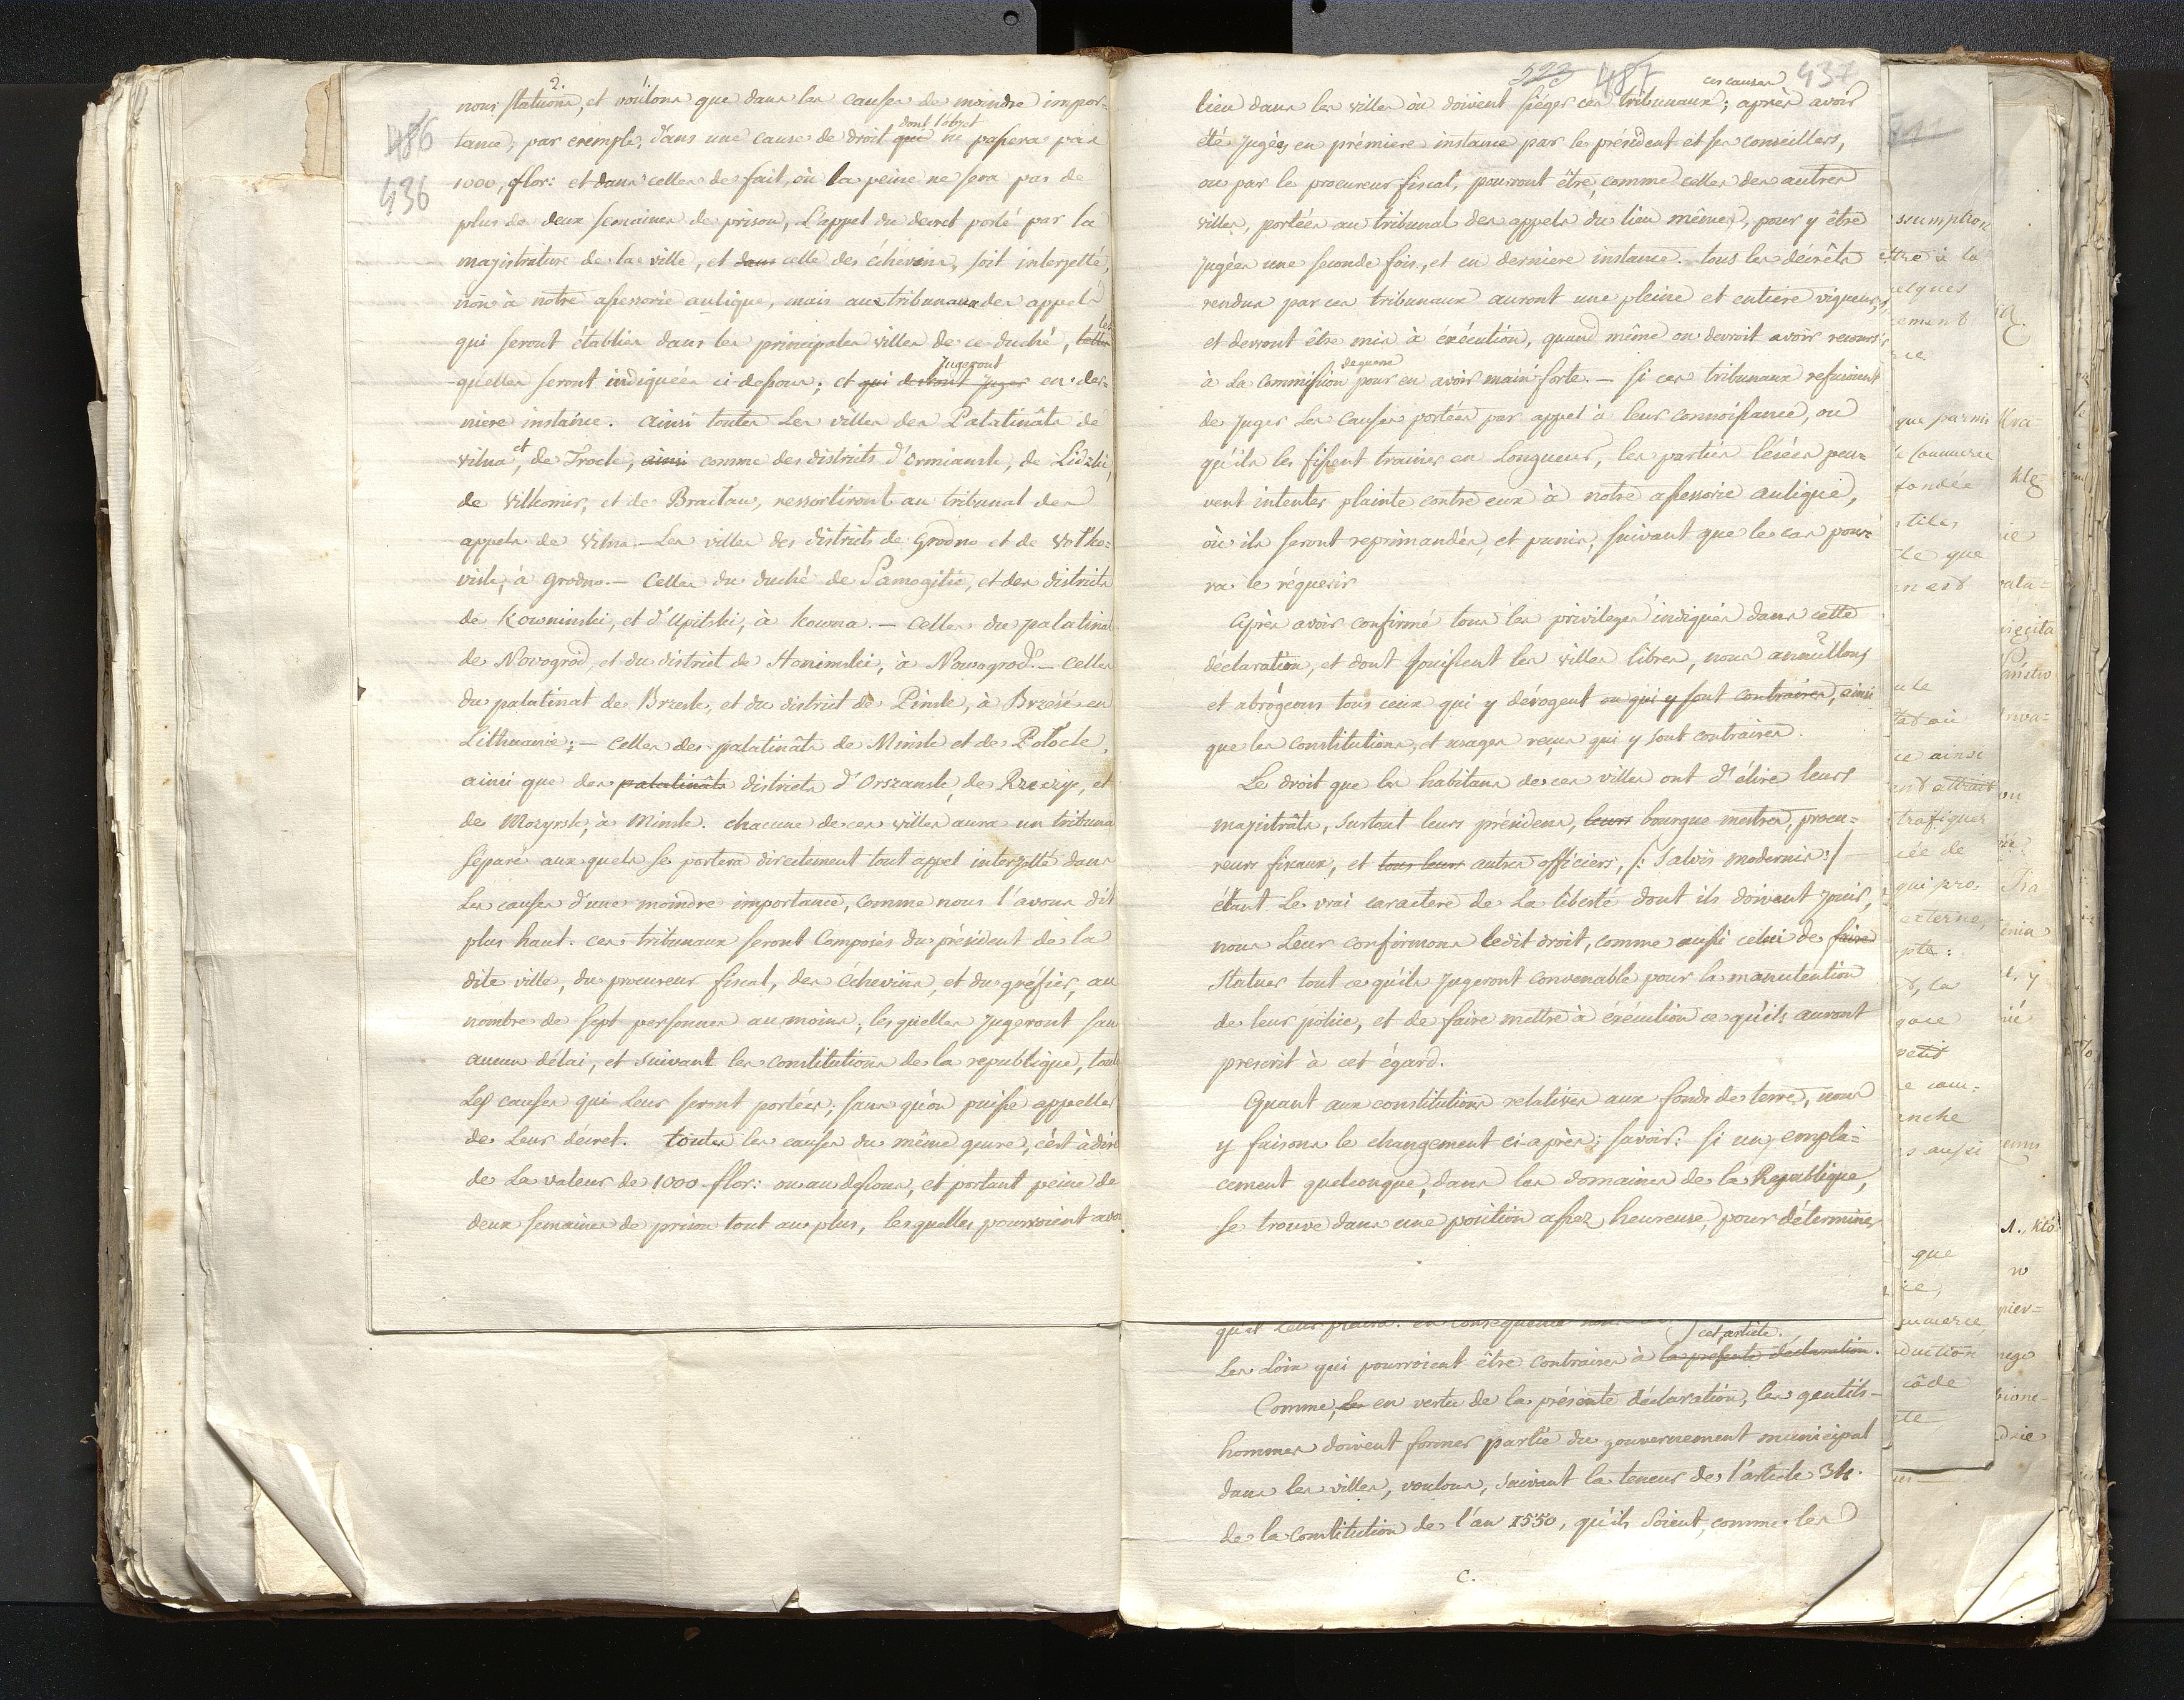 486
436
2. 1.
nous statuons, et voulons que dans les causes de moindre impor-
dont l'objet
tance, par exemple, dans une cause de droit qui ne passera pas
1000, flor: et dans celles de fait, où la peine ne sera pas de
plus de deux semaines de prison, L'appel du decret porté par la
magistrature de la ville, et dans celle des échevins, soit interjetté,
non à notre assessorie aulique, mais aux tribunaux des appels
qui seront établies dans les principales villes de ce duché, telles
les
Jugeront
qu'elles seront indiquées ci-dessous; et qui devront juger en der-
niere instance. Ainsi toutes Les villes des Palatinâts de
Vilna et, de Trock, ainsi comme des districts d'Ormiansk, de Lidzki,
de Vilkomir, et de Braclaw, ressortiront au tribunal des
appels de Vilna.— Les villes des districts de Grodno et de Wolko-
visk, à Grodno.— Celles du duché de Samogitie, et des districts
de Kowninski, et d'Upitski, à Kowna.— Celles du palatinat
de Novogrod, et du district de Slonimski, à Nowogrod.— Celles
du palatinat de Brzesk, et du district de Pinsk, à Brzésé en
Lithuanie;— Celles des palatinâts de Minsk et de Potock,
ainsi que des palatinâts districts d'Orszansk, de Rzeczyc, et
de Mozyrsk, à Minsk. chacune de ces villes aura un tribuna
séparé aux quels se portera directement tout appel interjetté dans
Les causes d'une moindre importance, comme nous l'avons dit
plus haut. ces tribunaux seront Composés du président de la
dite ville, du procureur fiscal, des échevins, et du gréfier, au
nombre de sept personnes au moins, lesquelles jugeront san
aucun délai, et suivant les constitutions de la republique, toutes
Les causes qui Leur seront portées; sans qu'on puisse appeller
de Leur décret. toutes les causes du même genre, c'est à dire
de La valeur de 1000 flor: ou au dessous, et portant peine de
deux semaines de prison tout au plus, lesquelles pourroient avo
523 487 437
ces causes
lieu dans les villes où doivent siéger ces tribunaux; après avoir
été jugées en prémiere instance par le président et ses conseillers,
ou par le procureur fiscal, pourront être, comme celles des autres
villes, portées au tribunal des appels du lieu même, pour y être
jugées une seconde fois, et en derniere instance. tous les décrèts
rendus par ces tribunaux auront une pleine et entiere vigueur,
et devront être mis à éxécution, quand même on devroit avoir recours
de guerre
à La Commission pour en avoir main forte.— si ces tribunaux refusoient
de juger Les Causes portées par appel à leur connoissance, ou
qu'ils les fissent trainer en Longueur, les parties lésées peu-
vent intenter plainte contre eux à notre assessorie aulique,
où ils seront reprimandés, et punis, suivant que le cas pour-
ra le réquerir
Après avoir confirmé tous les privileges indiqués dans cette
déclaration, et dont jouissent les villes libres, nous annullons
et abrogeons tous ceux qui y dérogent ou qui y sont contraires, ainsi
que les Constitutions, et usages reçus qui y sont contraires.
Le droit que les habitans de ces villes ont d'élire leurs
magistrâts, surtout leurs présidens, leurs bourgue mestres, procu-
reurs fiscaux, et tous leurs autres officiers, /: Salvis modernis :/
étant Le vrai caractere de La liberté dont ils doivent jouir,
nous Leur confirmons ledit droit, comme aussi celui de faire
Statuer tout ce qu'ils jugeront convenable pour la manutention
de leur police, et de faire mettre à éxécution ce qu'ils auront
prescrit à cet égard.
Quant aux constitutions relatives aux fonds de terre, nous
y faisons le changement ci-après; savoir: si un empla-
cement quelconque, dans les domaines de la Republique,
se trouve dans une position assez heureuse, pour déterminer
qu'il Leur plaira. en consequence
cet article.
Les Loix qui pourroient être contraires à la presente déclaration.
Comme, les en vertu de la présente déclaration, les gentils-
hommes doivent former partie du gouvernement municipal
dans les villes, voulons, suivant la teneur de l'article 34.
de la Constitution de l'an 1550, qu'ils soient, comme les
C.